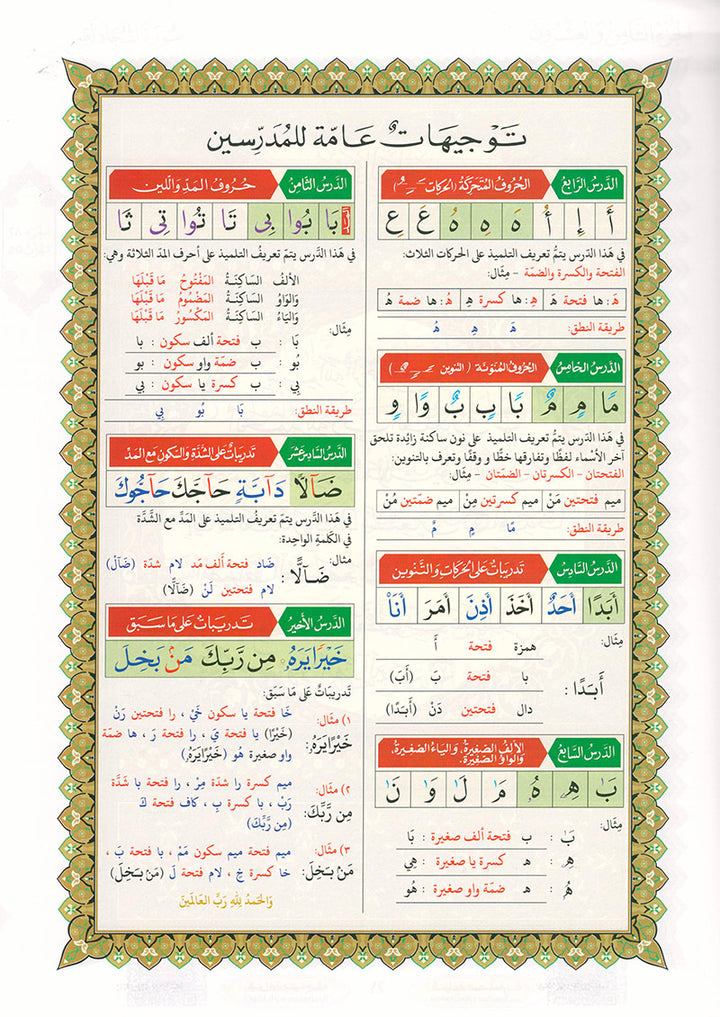 تَوْجِيهَاتٌ عَامّة للمُدَرِّسين
الدَّرسُ الرَّابِعُ
الحُرُوفُ المُتَحَرِّكَةُ (الحركات)
أَ إِ أُ هَ هِ هُ عَ عِ
في هَذا الدّرس يتمُّ تعريف التلميذ على الحركات الثلاث:
الفتحة والكسرة والضمّة - مِثَال:
هَـ: ها فتحة هَ هِـ: ها كسرة هِ هُـ: ها ضمة هُ
طريقة النطق: هَ هِ هُ
الدَّرسُ الخَامِسُ
الحُرُوفُ المُنَوَّنَة ( التنوين )
مًا مٍ مٌ بًا بٍ بٌ وًا وٍ
في هَذا الدّرس يتمُّ تعريف التلميذ على نون ساكنة زائدة تلحق
آخر الأسْماء لفظًا وتفارقها خطًّا و وقفًا وتعرف بالتنوين:
الفتحتان - الكسرتان - الضمّتان - مِثَال:
ميم فتحتين مَنْ ميم كسرتين مِنْ ميم ضمّتين مُنْ
طريقة النطق: مًا مٍ مٌ
الدَّرسُ السَّادِسُ
تَدرِيبَاتٌ عَلى الحَرَكَاتِ وَالتَّنْوين
أَبَدًا أَحَدٌ أَخَذَ أَذِنَ أَمَرَ أَنَا۠
مِثَال:
أَبَدًا:
همزة فتحة أَ
با فتحة بَ (أَبَ)
دال فتحتين دَنْ (أَبَدًا)
الدَّرسُ السَّابِعُ
الألِفُ الصَّغِيرَةُ، وَاليَاءُ الصَّغِيرَةُ،
وَالوَاوُ الصَّغِيرَةُ.
بَٰ هِۦ هُۥ مَٰ لَٰ وَٰ نَٰ
مِثَال:
بَٰ: ب فتحة ألف صغيرة : بَا
هِۦ: ه كسرة يا صغيرة : هِي
هُۥ: ه ضمّة واو صغيرة : هُو
الدَّرسُ الثَّامِنُ
حُرُوفُ المَدِّ وَاللّين
بَا بُوا بِى تَا تُوا تِى ثَا
في هَذا الدَّرس يتمّ تعريفُ التلميذ على أحرف المدّ الثلاثة وهي:
الألفُ السَّاكِنَةُ المَفْتُوحُ مَا قَبْلَهَا
وَالوَاوُ السَّاكِنَةُ المَضْمُومُ مَا قَبْلَهَا
وَاليَاءُ السَّاكِنَةُ المَكْسُورُ مَا قَبْلَهَا
مِثَال:
بَا : ب فتحة ألف سكون : با
بُو : ب ضمّة واو سكون : بو
بِي : ب كسرة يا سكون : بي
طريقة النطق: بَا بُو بِي
الدَّرسُ السَّادِسَ عَشَرَ
تَدرِيبَاتٌ عَلى الشَّدَّة وَالسُّكونِ مَعَ المَدّ
ضَآلًّا دَآبَّةٍ حَآجَّكَ حَآجُّوكَ
في هَذا الدَّرس يتمّ تعريفُ التلميذ على المَدِّ مع الشَّدَّة
في الكَلمةِ الوَاحِدة:
مثال:
ضَآلًّا:
ضَاد فتحة ألف مَد لام شدّة (ضَآلّ)
لام فتحتين لَنْ (ضَآلًّا)
الدَّرسُ الأَخِيرُ
تَدرِيبَاتٌ عَلى مَا سَبَقَ
خَيْرًا يَرَهُۥ مِن رَّبِّكَ مَنۢ بَخِلَ
تَدريبَاتٌ عَلى مَا سَبَق:
١) مثال:
خَيْرًا يَرَهُۥ:
خَا فتحة يا سكون خَيْ، را فتحتين رَنْ
(خَيْرًا) يا فتحة يَ، را فتحة رَ، ها ضمّة
واو صغيرة هُو (خَيْرًا يَرَهُۥ)
٢) مثال:
مِن رَّبِّكَ:
ميم كسرة را شدّة مِرْ، را فتحة با شَدَّة
رَبْ، با كسرة بِ، كاف فتحة كَ
(مِن رَّبِّكَ)
٣) مثال:
مَنۢ بَخِلَ:
ميم فتحة ميم سكون مَمْ، با فتحة بَ،
خا كسرة خِ، لام فتحة لَ (مَنۢ بَخِلَ)
وَالحَمدُ للهِ رَبِّ العَالَمِينَ